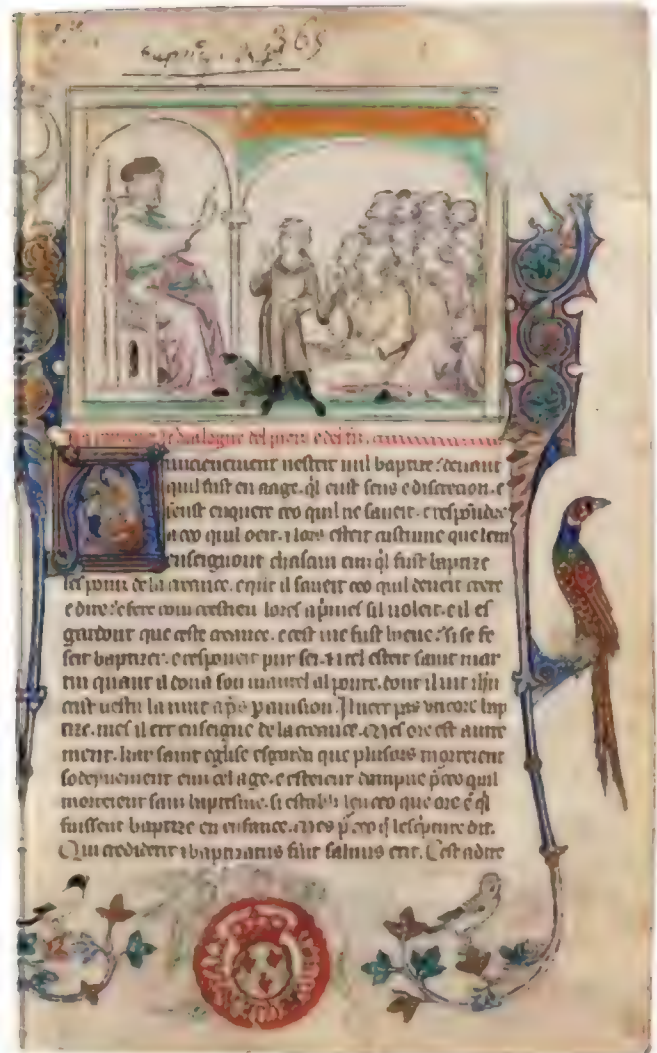 365
le dialogue del piere e del fiz.
Anciienement nesteit nul baptize devant
quil fust en aage. ql eust sens e discrecion. e
seust enquere ceo quil ne saueit. e respondre
a ceo quil oeit. ⁊ lors esteit custume que lem
enseignout chascun ein ql fust baptize
les poinz de la creance. e que il saueit ceo quil deueit crere
e dire. e fere com crestien. lores apmes sil uoleit. e il es
gardout que ceste creance. e cest uie fust boene. si se fe
seit baptizer. e responeit pur sei. ⁊ itel esteit saint mar
tin quant il dona son mantel al poure. dont il uit
eust uestu la nuit aps p auision. Il nert pas uncore bap
tize. mes il ert enseigne de la creance. Mes ore est autre
ment. kar saint eglise esgarda que plusors morreient
sodeynement ein cel age. e esteient dampne p ceo quil
morreient sanz baptesme. si establi len ceo que ore e ql
fuissent baptize en enfance. Mes p ceo q lescpture dit.
Qui crediderit ⁊ baptizatus fuit saluus erit. Cest adire